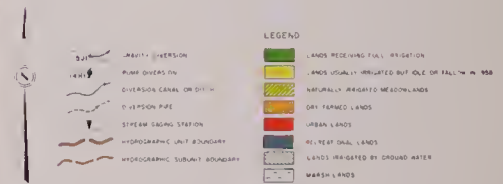 LEGEND
GRAVITY DIVERSION
PUMP DIVERSION
DIVERSION CANAL OR DITCH
DIVERSION PIPE
STREAM GAGING STATION
HYDROGRAPHIC UNIT BOUNDARY
HYDROGRAPHIC SUBUNIT BOUNDARY
LANDS RECEIVING FULL IRRIGATION
LANDS USUALLY IRRIGATED BUT IDLE OR FALLOW IN
NATURALLY IRRIGATED MEADOWLANDS
DRY FARMED LANDS
URBAN LANDS
RECREATIONAL LANDS
LANDS IRRIGATED BY GROUND WATER
MARSH LANDS